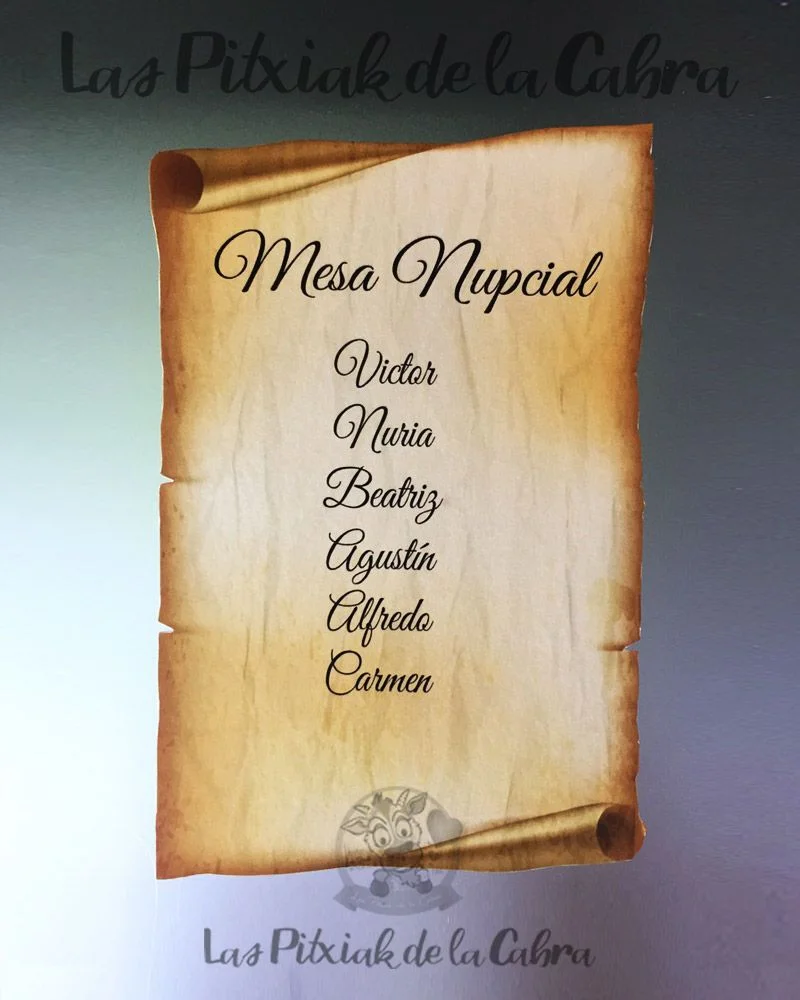 Las Pitxiak de la Cabra
Mesa Nupcial
Victor
Nuria
Beatriz
Agustín
Alfredo
Carmen
Las Pitxiak de la Cabra